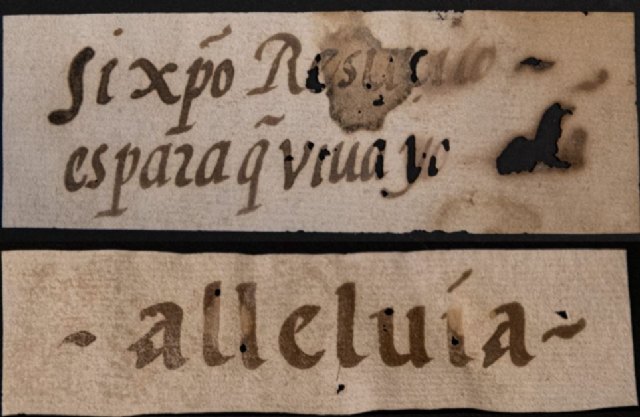 Si xp̃o Resucito ~
es para q̃ viua yo
- alleluía ~